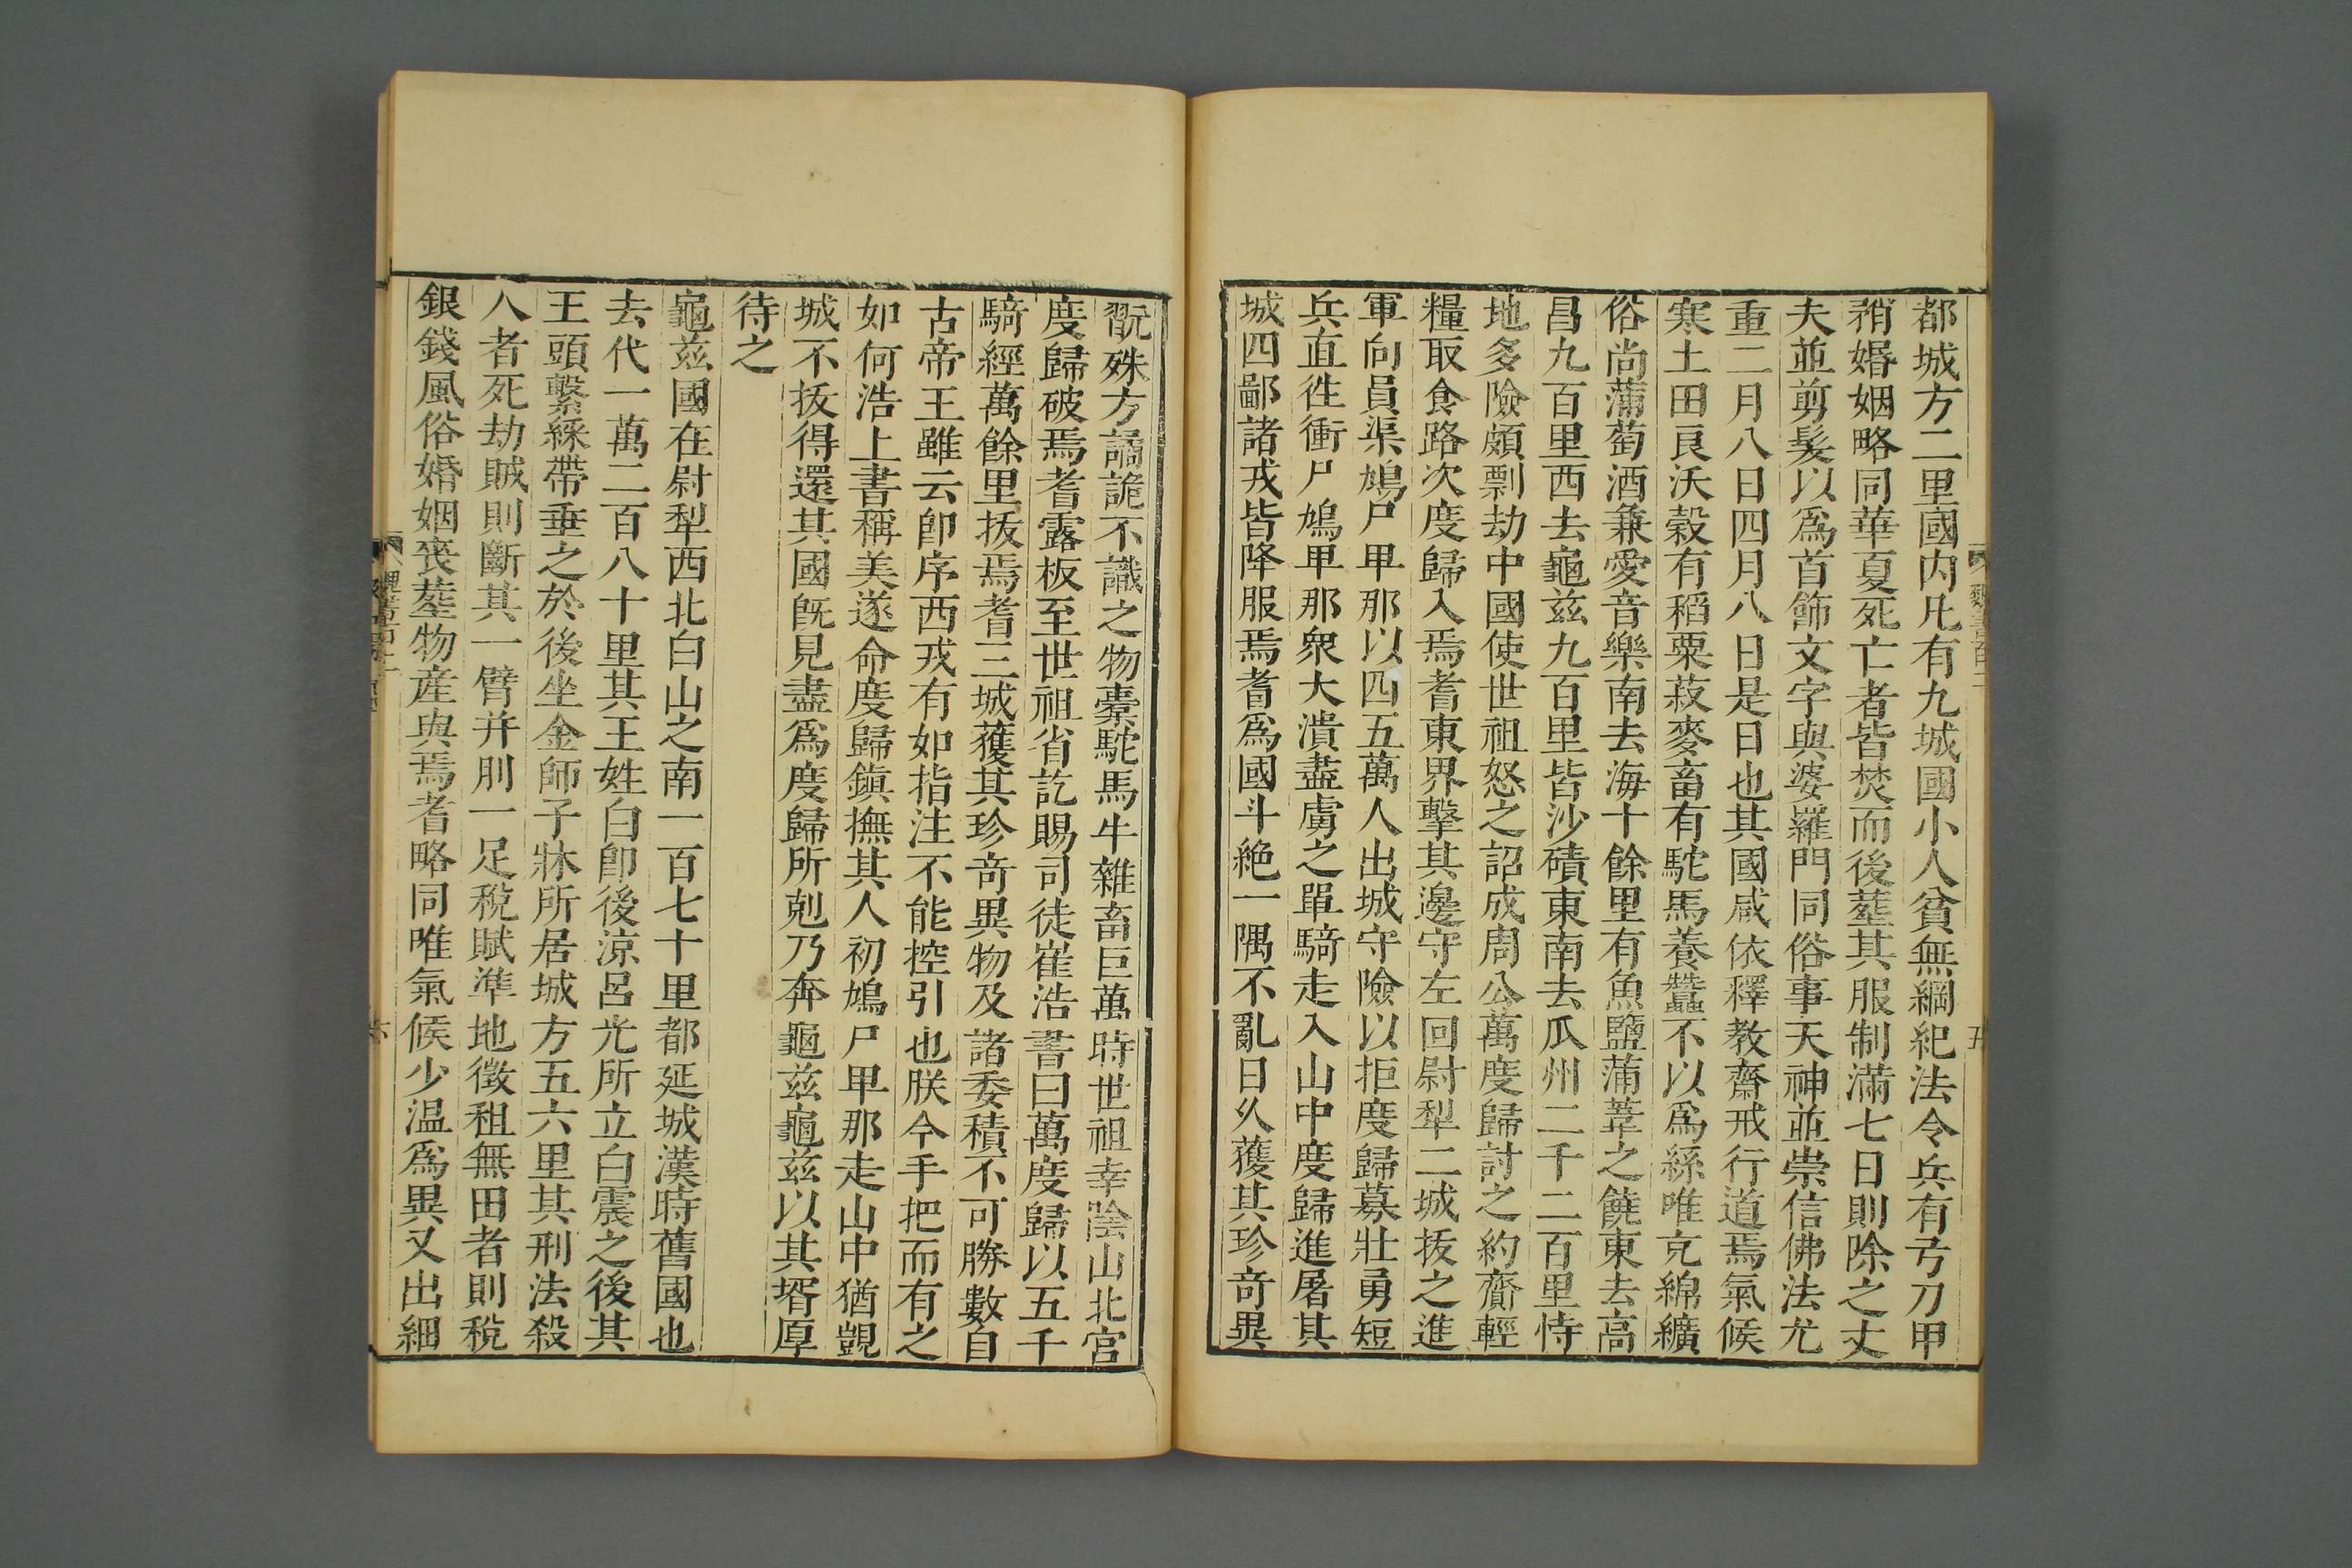 都城方二里國内凡有九城國小人貧無綱紀法令兵有弓刀甲
矟婚姻略同華夏死亡者皆焚而後塟其服制滿七日則除之丈
夫並剪髮以爲首飾文字與婆羅門同俗事天神並崇信佛法尤
重二月八日四月八日是日也其國咸依釋教齋戒行道焉氣候
寒土田良沃穀有稻粟菽麥畜有駝馬養蠶不以爲絲唯充綿纊
俗尚蒲萄酒兼愛音樂南去海十餘里有魚鹽蒲葦之饒東去高
昌九百里西去龜茲九百里皆沙磧東南去瓜州二千二百里恃
地多險頗剽劫中國使世祖怒之詔成周公萬度歸討之約齎輕
糧取食路次度歸入焉耆東界擊其邊守左回尉犁二城拔之進
軍向員渠鳩尸卑那以四五萬人出城守險以拒度歸募壯勇短
兵直徃衝尸鳩卑那衆大潰盡虜之單騎走入山中度歸進屠其
城四鄙諸戎皆降服焉耆爲國斗絶一隅不亂日乆獲其珍奇異
魏書百二
五
翫殊方譎詭不識之物橐駝馬牛雜畜巨萬時世祖幸陰山北宫
度歸破焉耆露板至世祖省訖賜司徒崔浩書曰萬度歸以五千
騎經萬餘里拔焉耆三城獲其珍奇異物及諸委積不可勝數自
古帝王雖云卽序西戎有如指注不能控引也朕今手把而有之
如何浩上書稱美遂命度歸鎭撫其人初鳩尸卑那走山中猶覬
城不拔得還其國旣見盡爲度歸所剋乃奔龜茲龜茲以其壻厚
待之
龜茲國在尉犁西北白山之南一百七十里都延城漢時舊國也
去代一萬二百八十里其王姓白卽後涼呂光所立白震之後其
王頭繫綵帶垂之於後坐金師子牀所居城方五六里其刑法殺
人者死劫賊則斷其一臂并刖一足稅賦準地徵租無田者則稅
銀錢風俗婚姻喪塟物産與焉耆略同唯氣候少温爲異又出細
魏書百二
六